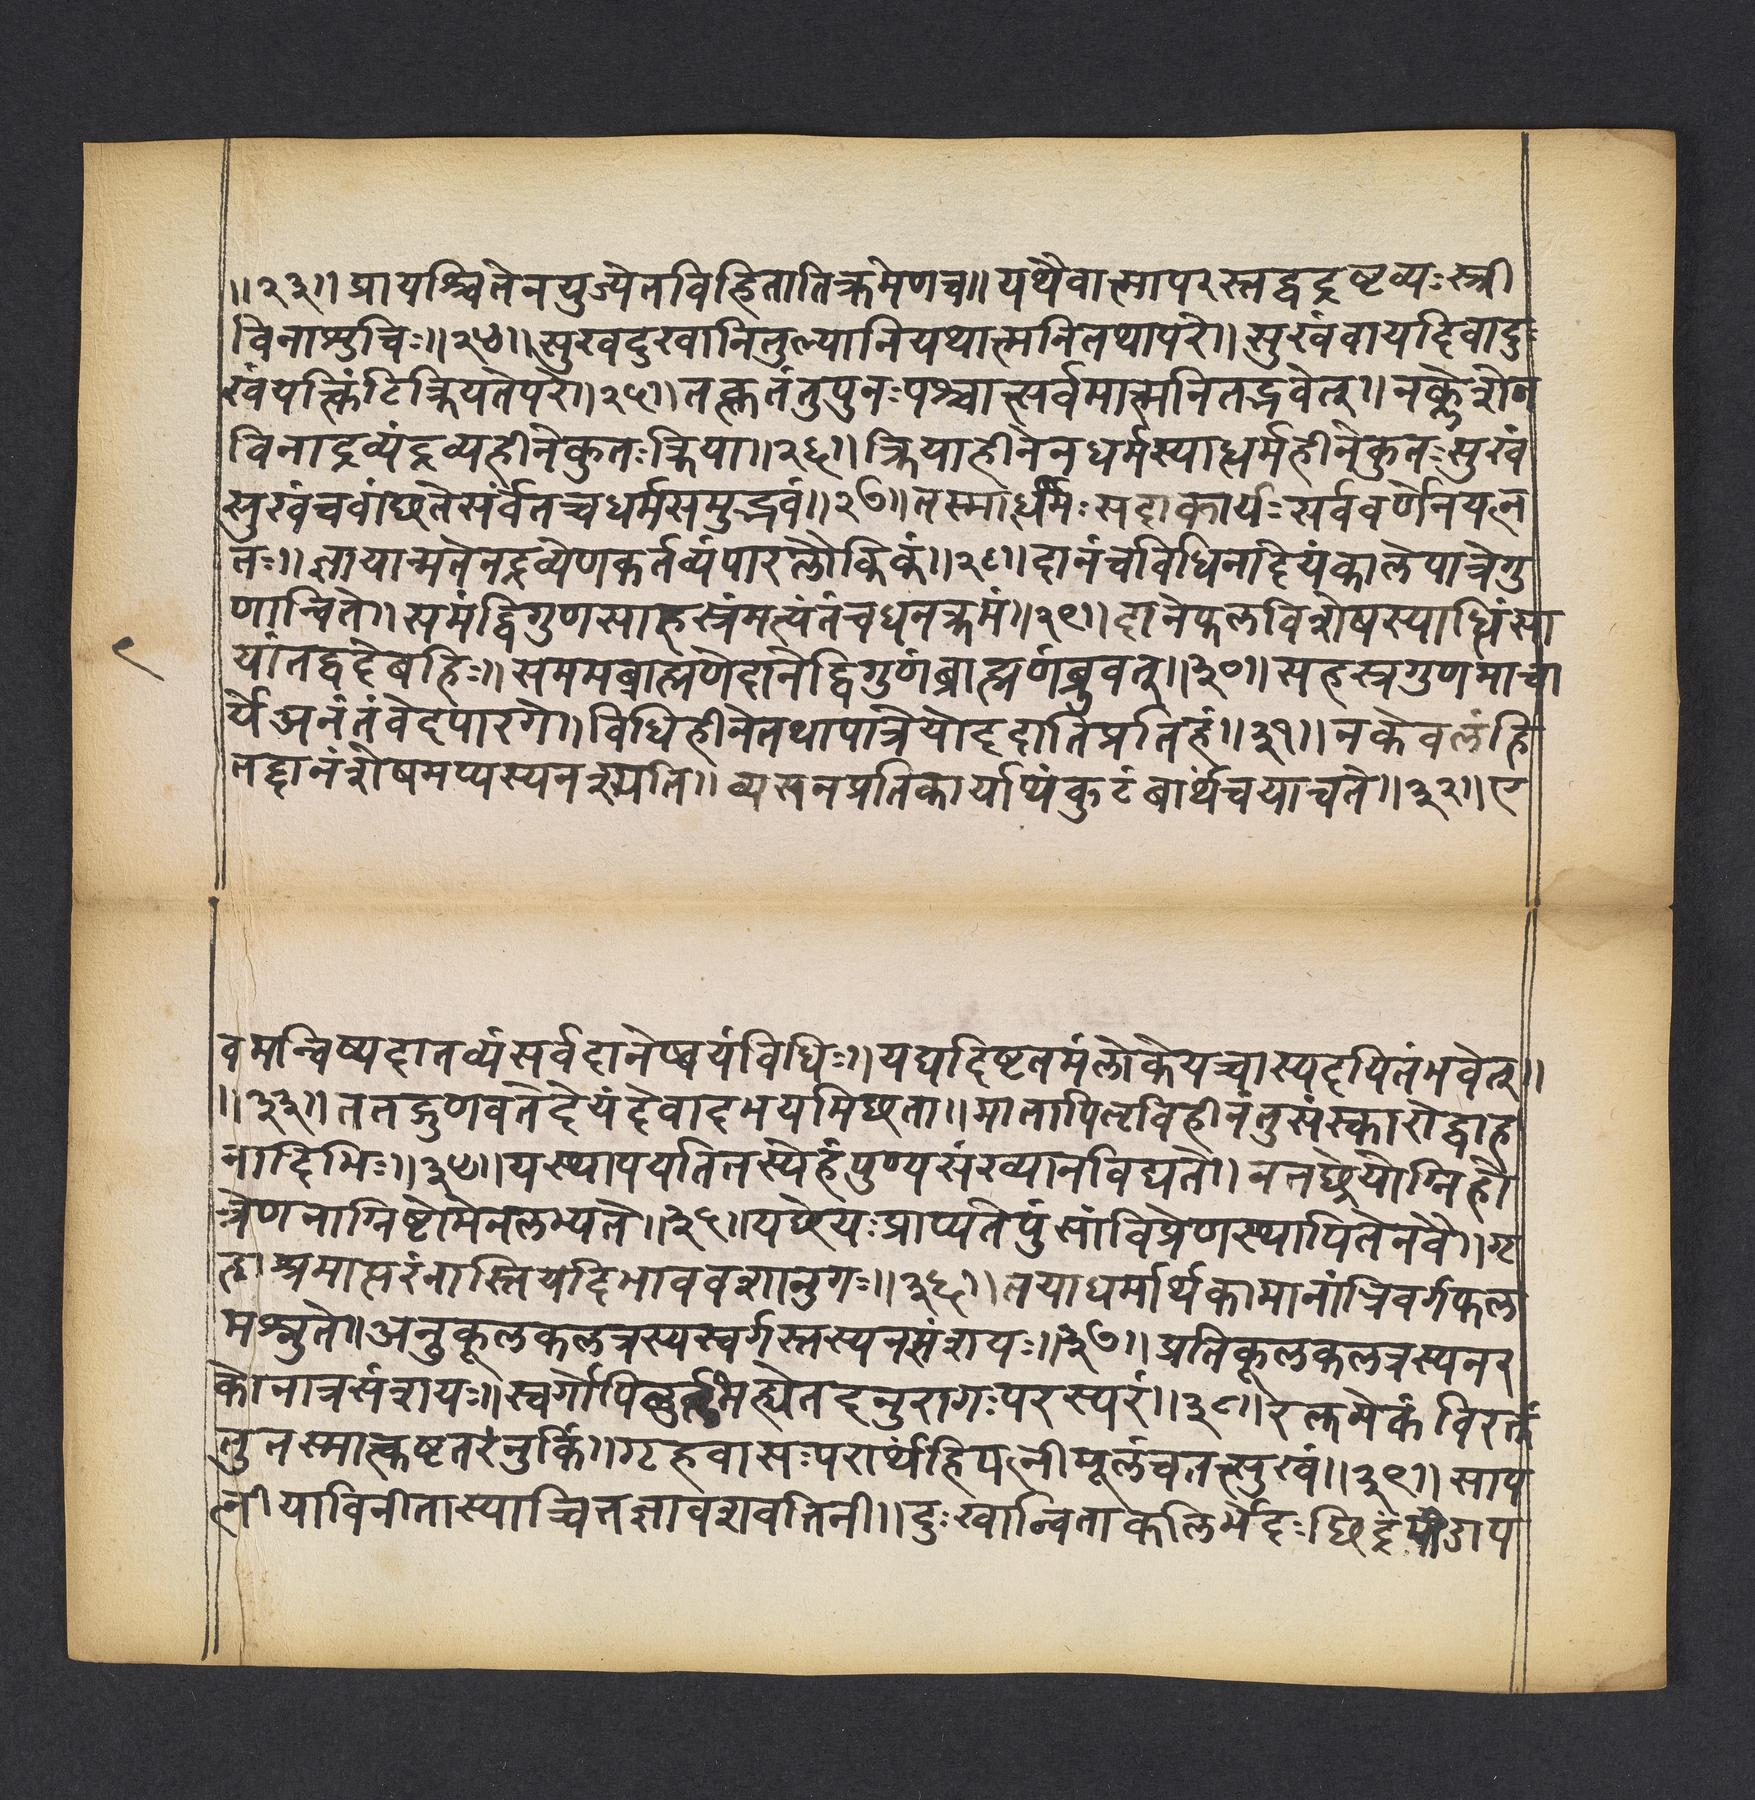 ॥२३॥ प्रायश्चितेनयुज्येतविहितातिक्रमेणच॥ यथैवात्मापरस्तद्वद्द्रष्टव्यः स्त्री
विनाशुचिः॥२४॥ सुखदुखानितुल्यानियथात्मनितथापरे॥ सुखंवायदिवादुः
खंयत्किंटित्क्रियतेपरे॥२५॥ तत्कृतंतुपुनःपश्चात्सर्वमात्मनितद्भवेत्॥ नक्लेशेन
विनाद्रव्यंद्रव्यहीनेकुतःक्रिया॥२६॥ क्रियाहीनेनधर्मस्याद्धर्महीनेकुतःसुखं
सुखंचवांछतेसर्वेतच्चधर्मसमुद्भवं॥२७॥ तस्माद्धर्मः सदाकार्यः सर्ववर्णेनयत्न
तः॥ ज्ञायान्मतेनद्रव्येणकर्तव्यंपारलौकिकं॥२८॥ दानंचविधिनादेयंकालेपात्रेगु
णान्विते॥ समंद्विगुणसाहस्त्रंमत्यंतंचधनक्रमं॥२९॥ दानेफलविशेषस्याध्धिंसा
यांतद्वदेबहिः॥ सममब्राह्मणेदानेद्विगुणंब्राह्मणंब्रुवत्॥३०॥ सहस्त्रगुणमाचा
र्येअनंतंवेदपारगे॥ विधिहीनेतथापात्रेयोददातिप्रतिहं॥३१॥ नकेवलंहि
तद्दानंशेषमप्यस्यनश्यति॥ व्यसनप्रतिकार्याप्यंकुटंबार्थंचयाचते॥३२॥ए
९
वमन्विष्यदातव्यंसर्वदानेष्वयंविधिः॥ यद्यदिष्टतमंलोकेयच्चास्यदयितंभवेत्॥
॥३३॥ ततद्गुणवतेदेयंदेवादभयमिछता॥ मातापितृविहीनंतुसंस्कारोद्वाह
नादिभिः॥३४॥ यस्थापयतितस्येहंपुण्यसंख्यानविद्यते॥ नतछ्रेयोग्निहो
त्रेणनाग्निष्टोमेनलभ्यते॥३५॥ यछ्रेयःप्राप्यतेपुंसांविप्रेणस्थापितेनवै॥ गृ
हाश्रमात्परंनास्तियदिभाववशानुगः॥३६॥ तयाधर्मार्थकामानांत्रिवर्गफल
मश्नुते॥ अनुकूलकलत्रस्यस्वर्गस्तस्यनसंशयः॥३७॥ प्रतिकूलकलत्रस्यनर
कोनात्रसंशयः॥ स्वर्गोपिदुर्लभंह्येतदनुरागःपरस्परं॥३८॥ रक्तमेकंविरक्तं
तुनस्मात्कष्टतरंनुकिं॥ गृहवासःपरार्थंहिपत्नीमूलंचतत्सुखं॥३९॥ साप
त्नीयाविनीतास्याच्चितज्ञावशवर्तिनी॥ दुःखान्विताकलिर्भेदःछिद्रंपीडाप